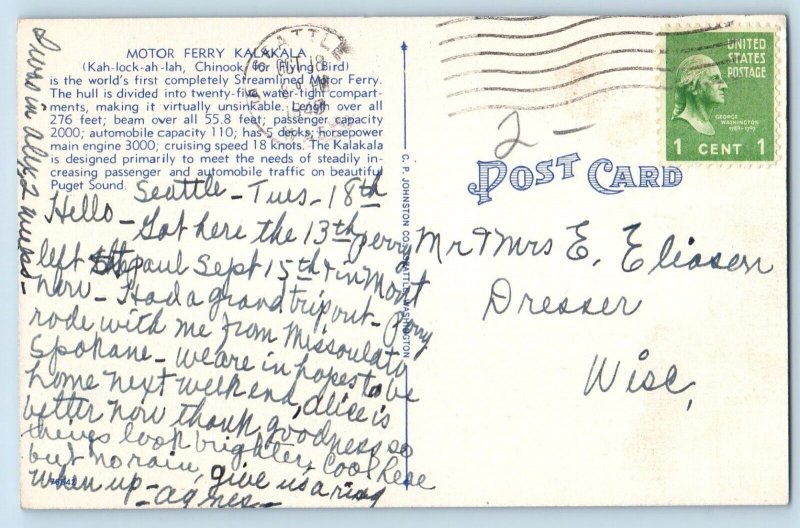 MOTOR FERRY KALAKALA
(Kah-lock-ah-lah, Chinook for Flying Bird)
is the world's first completely Streamlined Motor Ferry.
The hull is divided into twenty-five water-tight compart-
ments, making it virtually unsinkable. Length over all
276 feet; beam over all 55.8 feet; passenger capacity
2000; automobile capacity 110; has 5 decks; horsepower
main engine 3000; cruising speed 18 knots. The Kalakala
is designed primarily to meet the needs of steadily in-
creasing passenger and automobile traffic on beautiful
Puget Sound.
Seattle - Tues - 18th
Hello -
Got here the 13th, Perry
left St paul Sept 15th & in Mont
now - Had a grand trip out - Perry
rode with me from Missoula to
Spokane - we are in hopes to be
home next week end, Alice is
better now thank goodness so
things look brighter, Cool here
but no rain, give us a ring
when up - agnes -
in all, 2 weeks -
SEATTLE
OCT 18
C. P. JOHNSTON CO. SEATTLE, WASHINGTON
2 -
POST CARD
UNITED
STATES
POSTAGE
GEORGE
WASHINGTON
1789-1797
1 CENT 1
Mr & Mrs E. Eliasen
Dresser
Wisc,